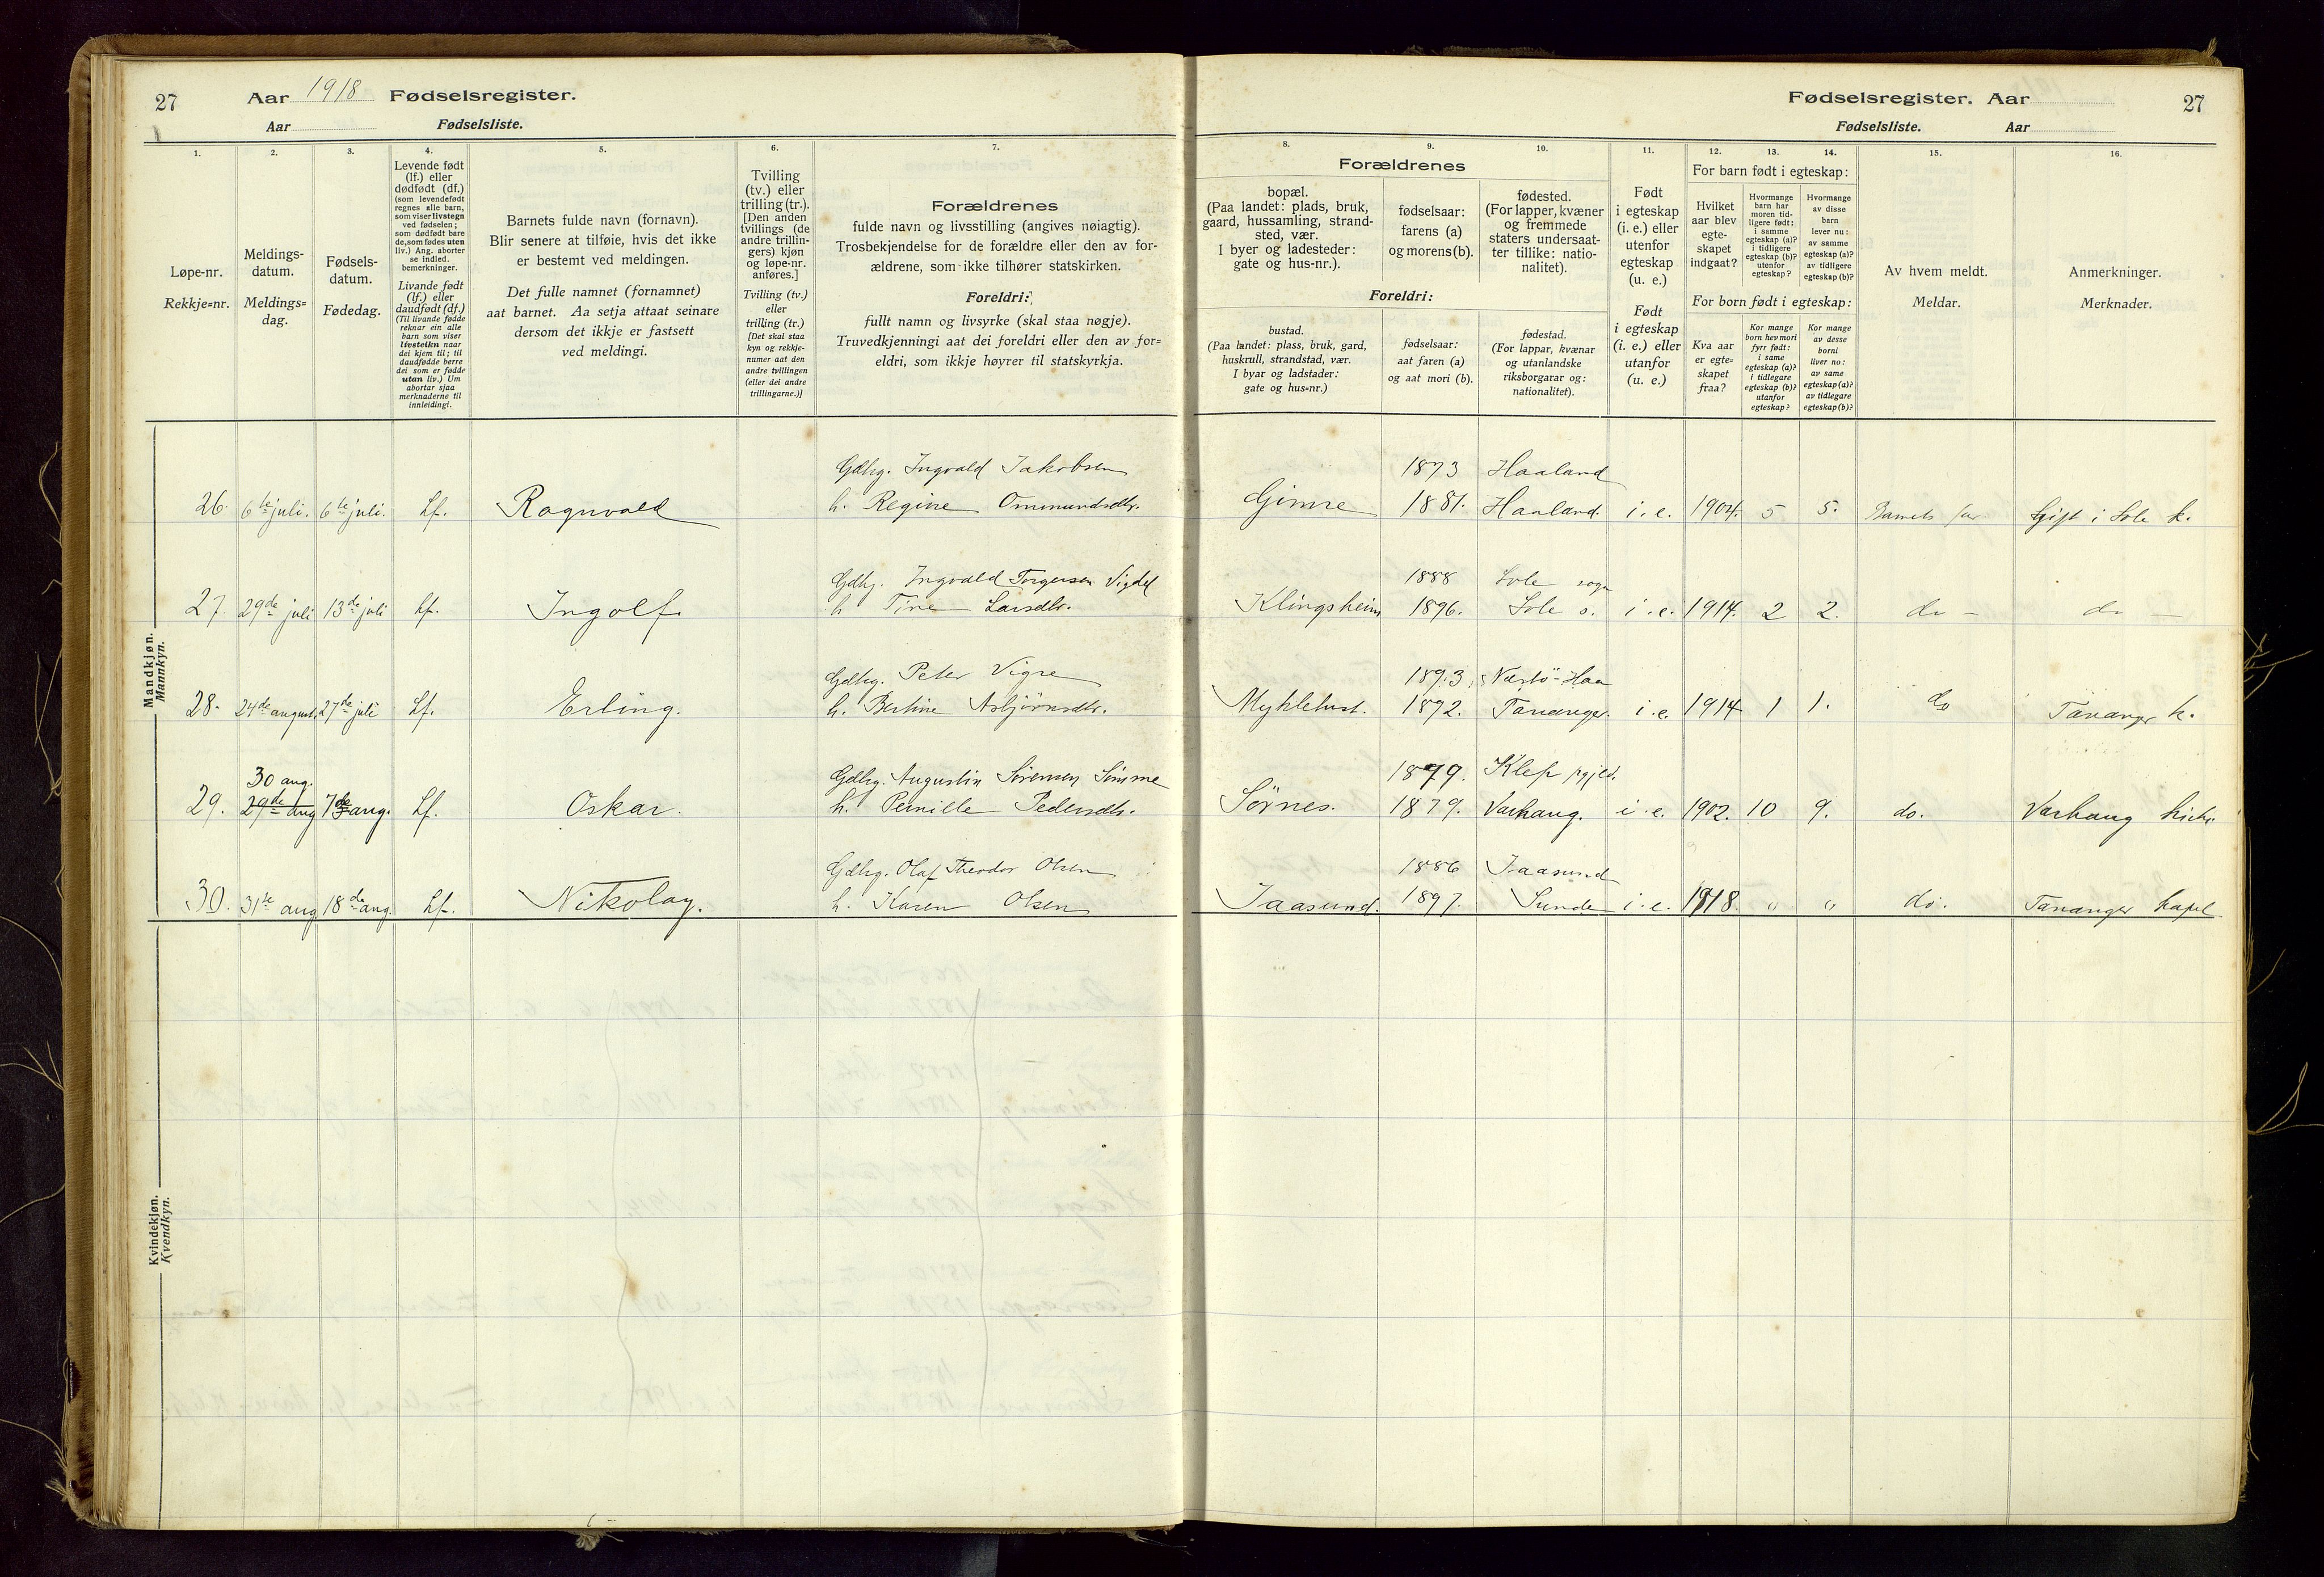 27
Aar 1918 Fødselsregister.
Aar Fødselsliste.
1.
Løpe-nr.
Rekkje=nr.
2.
Meldings-
datum.
Meldings=
dag.
3.
Fødsels-
datum.
Fødedag.
4.
Levende født
(lf.) eller
dødfødt (df.)
(som levendefødt
regnes alle barn,
som viser livstegn
ved fødselen;
som dødfødt bare
de, som fødes uten
liv.) Ang. aborter
se indled.
bemerkninger.
Livande født
(lf.) eller
daudfødt (df.)
(Til livande fødde
reknar ein alle
barn som viser
livsteikn naar
dei kjem til; til
daudfødde berre
dei som er fødde
utan liv.) Um
abortar sjaa
merknaderne til
innleidingi.
5.
Barnets fulde navn (fornavn).
Blir senere at tilføie, hvis det ikke
er bestemt ved meldingen.
Det fulle namnet (fornamnet)
aat barnet. Aa setja attaat seinare
dersom det ikkje er fastsett
ved meldingi.
6.
Tvilling
(tv.) eller
trilling (tr.).
[Den anden
tvillings (de
andre trillin-
gers) kjøn
og løpe-nr.
anføres.]
Tvilling (tv.)
eller
trilling (tr.)
[Det skal staa
kyn og rekkje-
numer aat den
andre tvillingen
(eller dei andre
trillingarne.)]
7.
Forældrenes
fulde navn og livsstilling (angives nøiagtig).
Trosbekjendelse for de forældre eller den av for-
ældrene, som ikke tilhører statskirken.
Foreldri:
fullt namn og livsyrke (skal staa nøgje).
Truvedkjenningi aat dei foreldri eller den av for=
eldri, som ikkje høyrer til statskyrkja.
Fødselsregister. Aar 27
Fødselsliste. Aar
Forældrenes
8.
bopæl.
(Paa landet: plads, bruk,
gaard, hussamling, strand-
sted, vær.
I byer og ladesteder:
gate og hus-nr.).
9.
fødselsaar:
farens (a)
og morens (b).
10.
fødested.
(For lapper, kvæner
og fremmede
staters undersaat-
ter tillike: natio-
nalitet).
Foreldri:
bustad.
(Paa landet: plass, bruk, gard,
huskrull, strandstad, vær.
I byar og ladstader:
gate og hus=nr.)
fødselsaar:
aat faren (a)
og aat mori (b).
fødestad.
(For lappar, kvænar
og utanlandske
riksborgarar og:
nationalitet).
11.
Født
i egteskap
(i. e.) eller
utenfor
egteskap
(u. e.)
Født
i egteskap
(i. e.) eller
utanfor
(u. e.)
12. 13. 14.
For barn født i egteskap:
Hvilket
aar blev
egte-
skapet
indgaat?
Hvormange
barn har
moren tid-
ligere født:
i samme
egteskap (a)?
i tidligere
egteskap (b)?
utenfor
egteskap?
Hvormange
av disse
barn
lever nu:
av samme
egteskap (a)?
av tidligere
egteskap (b)?
For born født i egteskap:
Kva aar
er egte=
skapet
fraa?
Kor mange
born hev mori
fyrr født:
i same
egteskap (a)?
i tidlegare
egteskap (b)?
utanfor
egteskap?
Kor mange
av desse
borni
liver no:
av same
egteskap (a)?
av tidlegare
egteskap (b)?
15.
Av hvem meldt.
Meldar.
16.
Anmerkninger.
Merknader.
Mandkjøn.
Mannkyn.
Gdbg. Ingvald Jakobsen 1873 Haaland
26. 6te juli. 6te juli. Lf. Ragnvald h. Regine Ommundsdtr. Gimre 1881. Haaland. i. e. 1904. 5 5. Barnets far. Gift i Sole k.
Gdbg. Ingvald Torgersen Vigdel 1888 Sole sogn
27. 29de juli 13de juli Lf. Ingolf. h. Tine Larsdtr. Klingsheim 1896. Sole s. i. e. 1914. 2 2. do – do –
Gdbg. Peter Vigre 1893. Nærbö-Haa
28. 24de august. 27de juli Lf. Erling. h. Bertine Asbjörnsdtr. Myklebust. 1892. Tananger. i. e. 1914 1 1. do Tananger k.
30 aug. Gdbg. Augustin Sörensen Sömme 1879. Klep pgjed.
29. 29de aug 7de aug. Lf. Oskar. h. Pernille Pedersdtr. Sörnes. 1879. Varhaug. i. e. 1902. 10 9. do. Varhaug kirke
Gdbg. Olaf Theodor Olsen 1886 Jaasund
30. 31te aug 18de aug. Lf. Nikolay. h. Karen Olsen Jaasund. 1897. Sunde i. e. 1918. " " do. Tananger kapel
Kvindekjøn.
Kvendkyn.